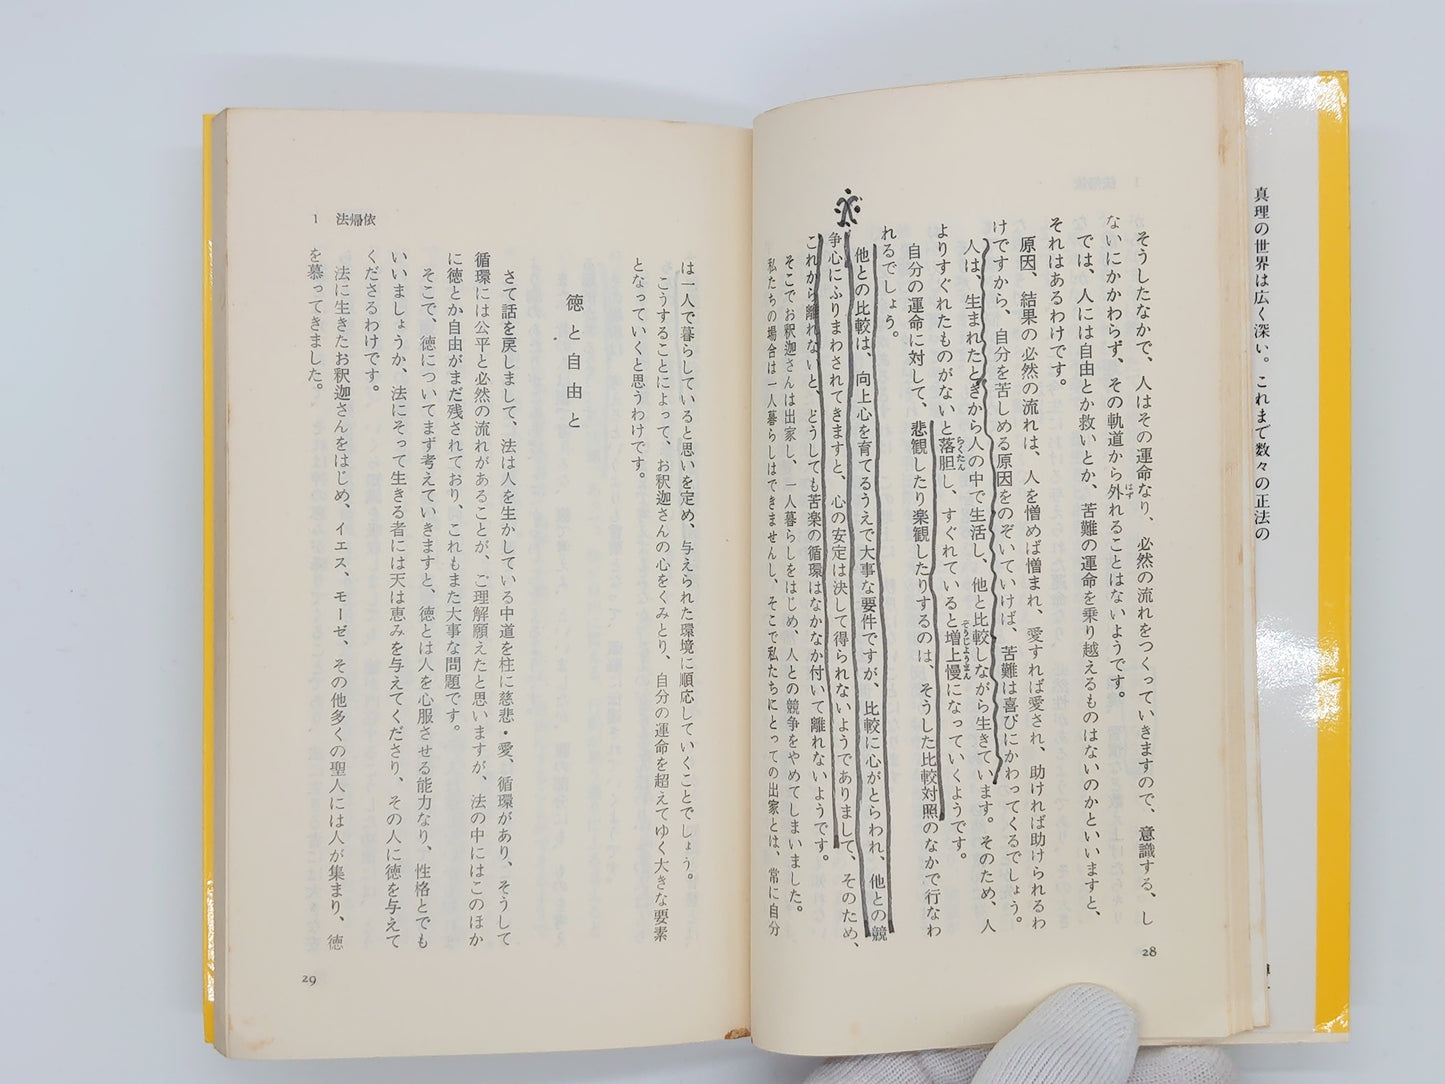 真理の世界は広く深い。これまで数々の正法の
そうしたなかで、人はその運命なり、必然の流れをつくっていきますので、意識する、し
ないにかかわらず、その軌道から外れることはないようです。
はず
では、人には自由とか救いとか、苦難の運命を乗り越えるものはないのかといいますと、
それはあるわけです。
原因、結果の必然の流れは、人を憎めば憎まれ、愛すれば愛され、助ければ助けられるわ
けですから、自分を苦しめる原因をのぞいていけば、苦難は喜びにかわってくるでしょう。
人は、生まれたときから人の中で生活し、他と比較しながら生きています。そのため、人
よりすぐれたものがないと落胆し、すぐれていると増上慢になっていくようです。
らくたん
ぞうじようまん
自分の運命に対して、悲観したり楽観したりするのは、そうした比較対照のなかで行なわ
れるでしょう。
他との比較は、向上心を育てるうえで大事な要件ですが、比較に心がとらわれ、他との競
争心にふりまわされてきますと、心の安定は決して得られないようでありまして、そのため、
これから離れないと、どうしても苦楽の循環はなかなか付いて離れないようです。
そこでお釈迦さんは出家し、一人暮らしをはじめ、人との競争をやめてしまいました。
私たちの場合は一人暮らしはできませんし、そこで私たちにとっての出家とは、常に自分
28
は一人で暮らしていると思いを定め、与えられた環境に順応していくことでしょう。
こうすることによって、お釈迦さんの心をくみとり、自分の運命を超えてゆく大きな要素
となっていくと思うわけです。
徳と自由と
さて話を戻しまして、法は人を生かしている中道を柱に慈悲・愛、循環があり、そうして
循環には公平と必然の流れがあることが、ご理解願えたと思いますが、法の中にはこのほか
に徳とか自由がまだ残されており、これもまた大事な問題です。
そこで、徳についてまず考えていきますと、徳とは人を心服させる能力なり、性格とでも
いいましょうか、法にそって生きる者には天は恵みを与えてくださり、その人に徳を与えて
くださるわけです。
法に生きたお釈迦さんをはじめ、イエス、モーゼ、その他多くの聖人には人が集まり、徳
を慕ってきました。
1 法帰依
29